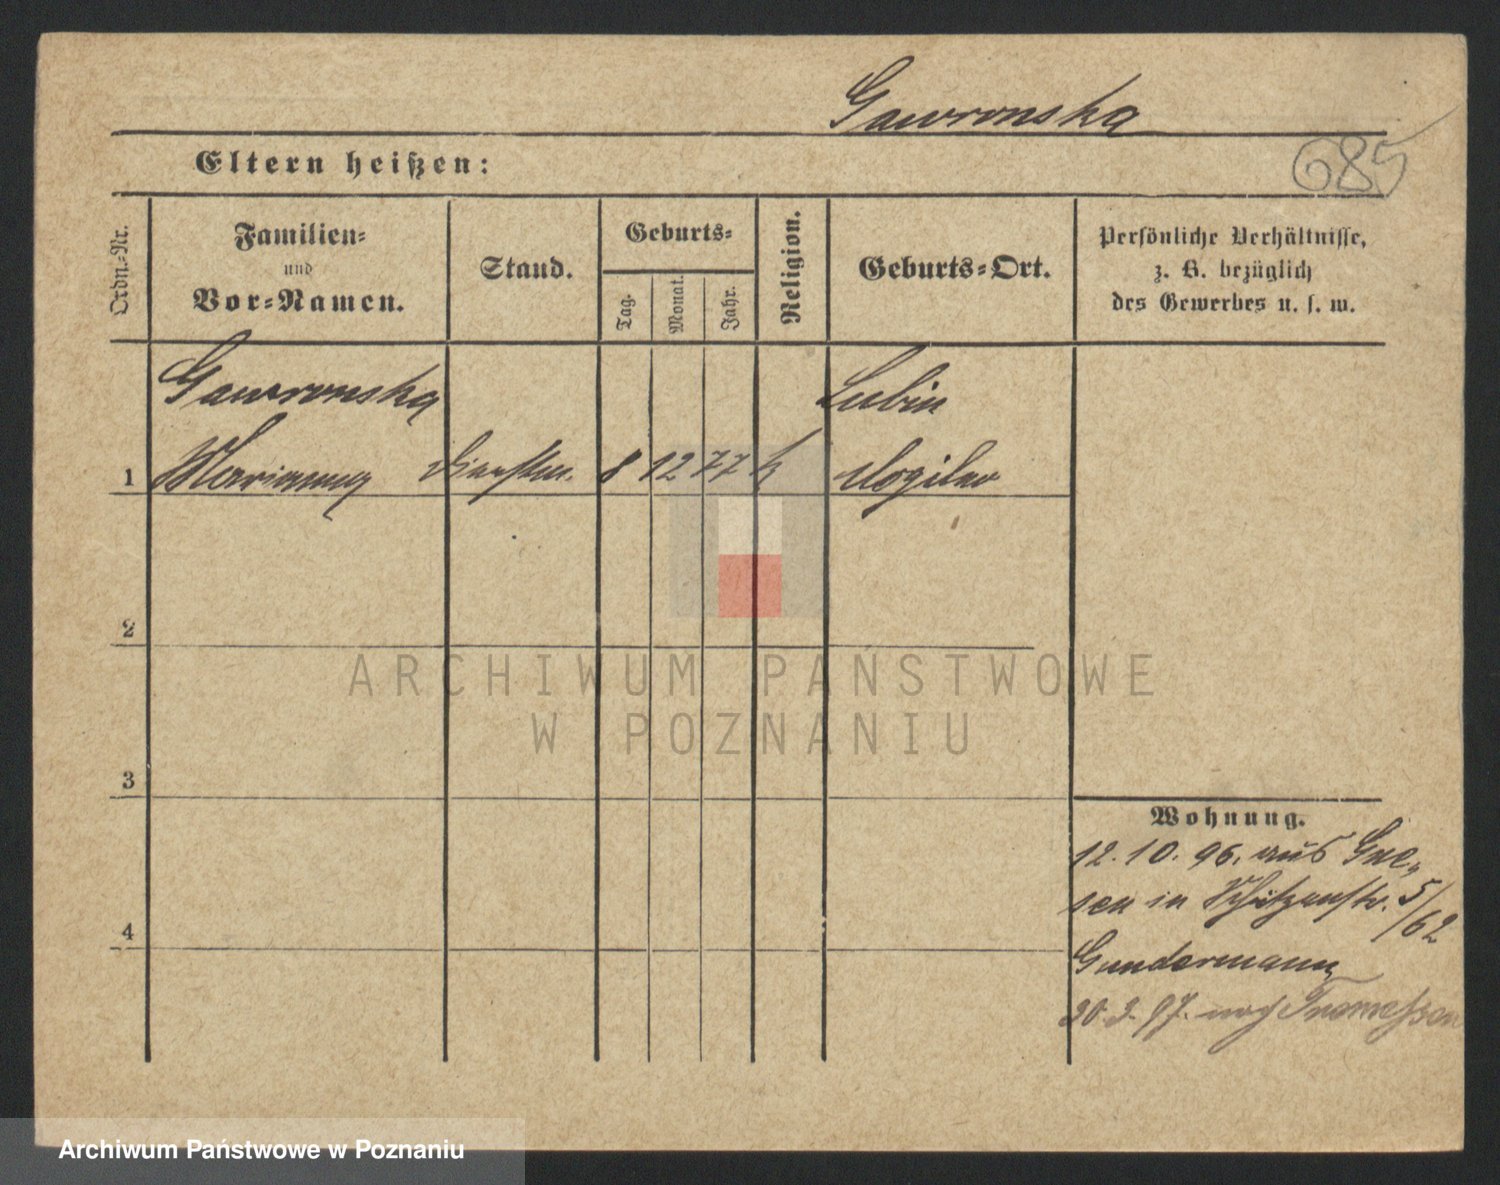 Gawronska
685
Eltern heißen:
Ordn.-Nr.
Familien-
und
Vor-Namen.
Stand.
Geburts-
Tag.
Monat.
Jahr.
Religion.
Geburts-Ort.
Persönliche Verhältnisse,
z. B. bezüglich
des Gewerbes u. s. w.
Gawronska
Lubin
1 Marianna 8 12 77 k Mogilno
2
ARCHIWUM PAŃSTWOWE
W POZNANIU
3
Wohnung.
12. 10. 96. aus Gne-
sen in Schützenstr. 5/62
4
Gundermann
30. 3. 97. nach Tremessen
Archiwum Państwowe w Poznaniu